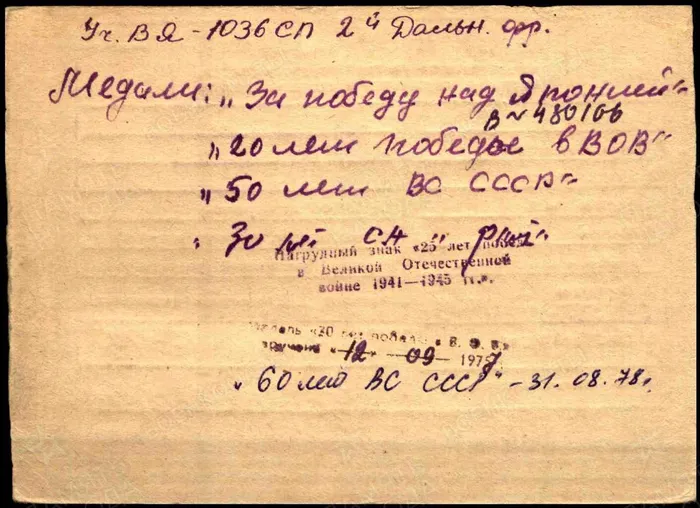 Уч. В Я - 1036 СП 2й Дальн. фр.
Медали: „За победу над Японией"
В № 480106
„20 лет победы в ВОВ"
„50 лет ВС СССР"
„30 лет СА
Нагрудный знак «25 лет победы
в Великой Отечественной
войне 1941—1945 гг.».
Медаль «30 лет победы в В. О. В.»
вручена «12» 09 1975
„60 лет ВС СССР" - 31.08.78.